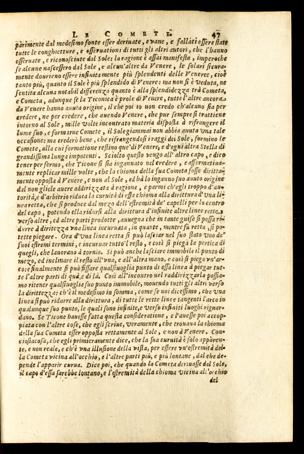 LE COMETE. 47
parimente dal medesimo fonte esser deriuate, e vane, e fallaci essere state
tutte le conghietture, e osseruationi di tutti gli altri autori, che l'hanno
osseruate, e riconosciute dal Sole: la ragione è assai manifesta, imperoche
se alcune nascessero dal Sole, e alcun'altre da Venere, le solari sicura-
mente dourebbono essere infinitamente più splendenti delle Veneree, cioè
tanto più, quanto il Sole è più splendente di Venere: ma non si è veduta, ne
sentita alcuna notabil differenza quanto è alla splendidezza trà Cometa,
e Cometa, adunque se la Ticonica è prole di Venere, tutte l'altre ancora
da Venere hanno auuto origine, il che poi io non credo ch'alcuno sia per
credere, ne per credere, che auendo Venere, che pur sempre si trattiene
intorno al Sole, mille volte incontrato materia disposta à rifrangere il
lume suo, e formarne Cometa, il Sole giammai non abbia auuta vna tale
occasione: ma crederò bene, che rifrangendosi i raggi del Sole, formino le
Comete, alla cui formatione restino que' di Venere, e d'ogni altra Stella di
grandissima lunga impotenti. Sciolto questo vengo all'altro capo, e dico
tener per fermo, che Ticone si sia ingannato nel credere, e
mente replicar mille volte, che la chioma della sua Cometa fosse
mente opposta à Venere, e non al Sole, ed hà lo inganno suo auuto origine
dal non gli esser auuto addirizzata à ragione, e parmi ch'egli troppo d'au-
torità, e d'arbitrio ridotta la curuità della chioma alla dirittura d'vna li-
nea retta, che si produce dal mezo dell'estremità de' capelli per lo centro
del capo, potendo ella ridursi alla dirittura d'infinite altre linee rette,
verso altre, ed altre parti prodotte, auuegna che in tante guise si possa ri-
durre à dirittezza vna linea incuruata, in quante, mentre fù retta, si po-
tette piegare. Ora d'vna linea retta si può lasciare nel suo stato vno de'
suoi estremi termini, e incuruare tutto'l resto, e così si piega la pertica di
quegli, che lauorano à tornio. Si può anche lasciare immobile il punto di
mezo, ed inclinare il resto all'vna, e all'altra mano, e così si piega vn'ar-
co: e finalmente si può fissare qualsiuoglia punto di essa linea e piegar tut-
te l'altre parti di qua, e di là. Così all'incontro nel raddirizzarla possia-
mo ritener qualsiuoglia suo punto immobile, mouendo tutti gli altri verso
la dirittezza: ch'è il medesimo in somma, come se noi dicessimo, che vna
linea si può ridurre alla dirittura, di tutte le rette linee tangenti l'arco in
qualunque suo punto, le quali sono infinite, e verso infiniti luoghi riguar-
dano. Se Ticone hauesse fatta questa consideratione, e l'auesse poi accop-
piata con l'altre cose, che egli scriue, veramente, che trouaua la chioma
della sua Cometa esser opposta rettamente al Sole, e non à Venere. Con-
ciosiacosa, che egli primieramente dice, che la sua curuità è solo apparen-
te, e non reale, e ch'è vna illusione della vista, per essere vn'estremità del-
la Cometa vicina all'occhio, e l'altre parti più, e più lontane, dal che de-
pende l'apparir curua. Dice poi, che quando la Cometa deriuasse dal Sole,
il capo d'essa sarebbe lontano, e l'estremità della chioma vicina all'occhio
del